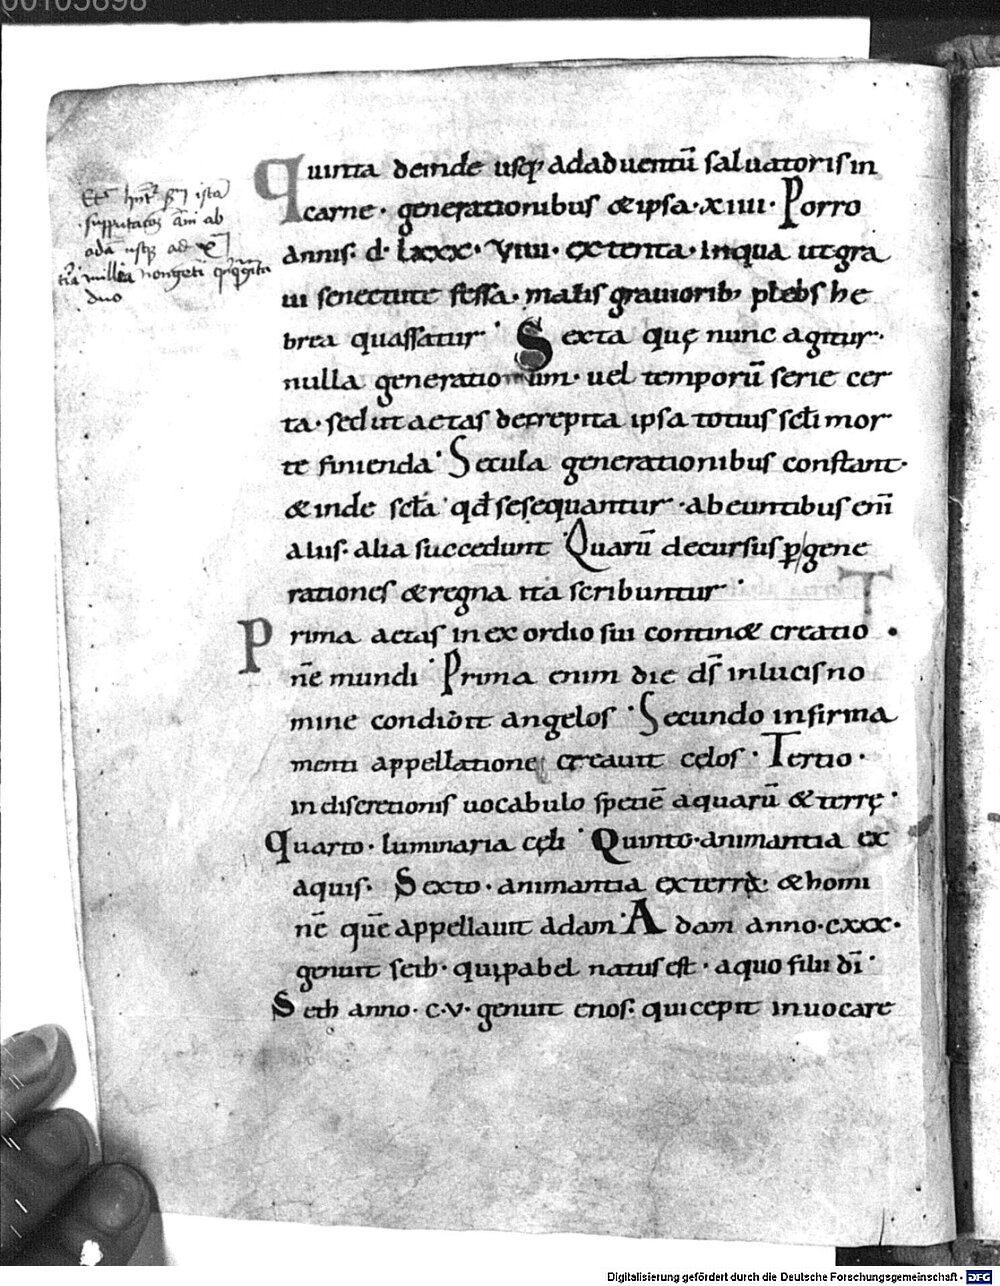 00105698
Quinta deinde usq; adaduentū saluatoris in
carne · generationibus & ipsa · xiiii · Porro
annis · d · lxxx · viiii · extenta · In qua ut gra
ui senectute fessa · malis grauiorib; plebs he
brea quassatur · Sexta quę nunc agitur ·
nulla generationum · uel temporū serie cer
ta · sed ut aetas decrepita ipsa totius sc̄li mor
te finienda · Secula generationibus constant ·
& inde sc̄la · qđ se sequantur · abeuntibus eni̅
aliis · alia succedunt · Quarū decursus p̱ gene
rationes & regna ita scribuntur ·
Prima aetas in exordio sui contin& creatio
nē mundi · Prima enim die ds̄ in lucis no
mine condidit angelos · Secundo in firma
menti appellatione creauit cęlos · Tertio ·
in discretionis uocabulo speciē aquarū & terrę ·
quarto · luminaria cęli · Quinto · animantia ex
aquis · Sexto · animantia ex terra · & homi
nē quē appellauit adam · Adam anno · cxxx ·
genuit seth · qui p abel natus est · a quo filii dī ·
Seth anno · c · v · genuit enos · qui cepit inuocare
ista
ab
adā usq; ad
millia nongeti
duo
T
Digitalisierung gefördert durch die Deutsche Forschungsgemeinschaft - DFG